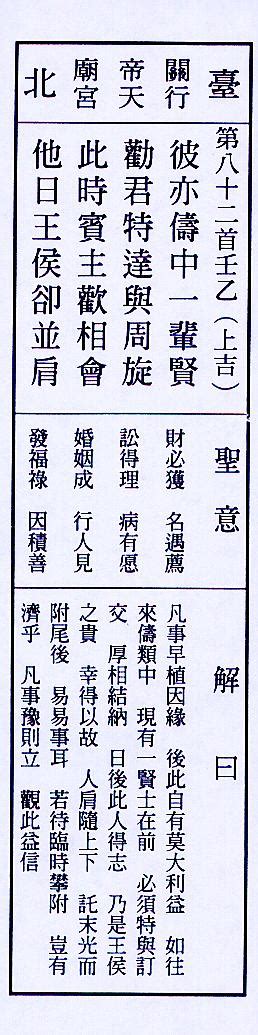 臺北
關行
帝天
廟宮
第八十二首壬乙（上吉）
彼亦儔中一輩賢
勸君特達與周旋
此時賓主歡相會
他日王侯卻並肩
聖意
財必獲 名遇薦
訟得理 病有愿
婚姻成 行人見
發福祿 因積善
解曰
凡事早植因緣 後此自有莫大利益 如往
來儔類中 現有一賢士在前 必須特與訂
交 厚相結納 日後此人得志 乃是王侯
之貴 幸得以故 人肩隨上下 託末光而
附尾後 易易事耳 若待臨時攀附 豈有
濟乎 凡事豫則立 觀此益信